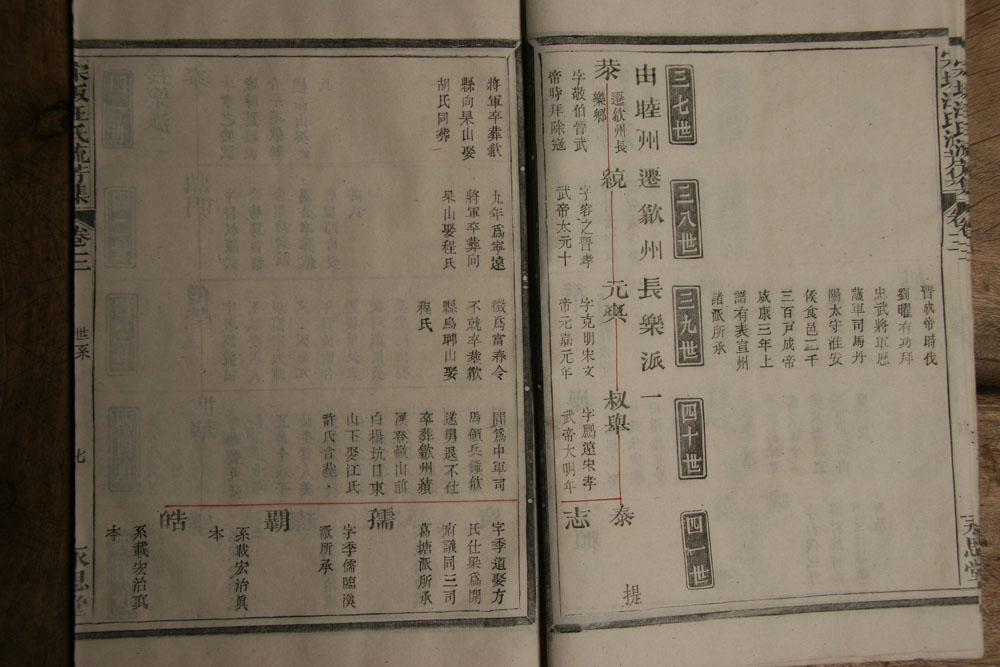 汪氏流芳集
永思堂
晉成帝時伐
劉曜有功拜
忠武將軍歷
護軍司馬丹
陽太守淮安
侯食邑二千
三百戶成帝
咸康三年上
譜有表宣州
諸派所承
三七世
三八世
三九世
四十世
四一世
由睦州遷歙州長樂派一
提
遷歙州長
樂鄉
字敬伯晉武
帝時拜除寇
將軍卒葬歙
縣向杲山娶
胡氏同葬
統
字容之晉孝
武帝太元十
九年爲寧遠
將軍卒葬向
杲山娶程氏
元樂
字克明宋文
帝元嘉元年
徵爲富春令
不就卒葬歙
縣烏聊山娶
程氏
叔舉
字鵬遠宋孝
武帝大明年
間爲中軍司
馬領兵鍾歙
遂勇退不仕
卒葬歙州積
溪登龍山前
白楊坑日東
山下娶江氏
許氏合葬
泰
志
字季道娶方
氏仕梁爲開
府議同三司
葛塘派所承
孺
字季儒臨溪
派所承
霸
系載宏治眞
本
皓
系載宏治眞
本
汪氏流芳集
世系
七
永思堂